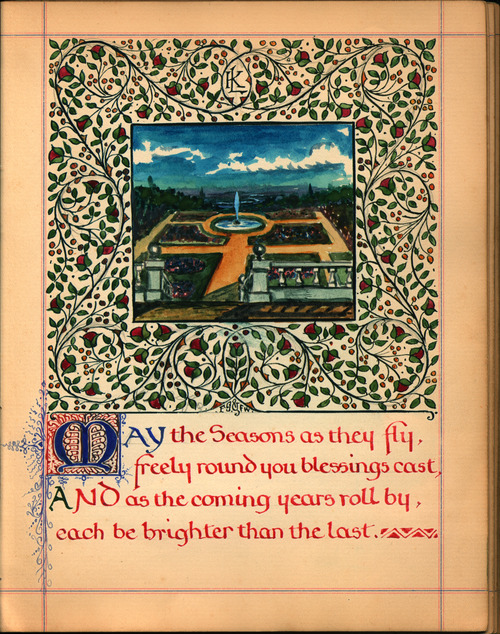 MAY the Seasons as they fly,
freely round you blessings cast,
AND as the coming years roll by,
each be brighter than the last.